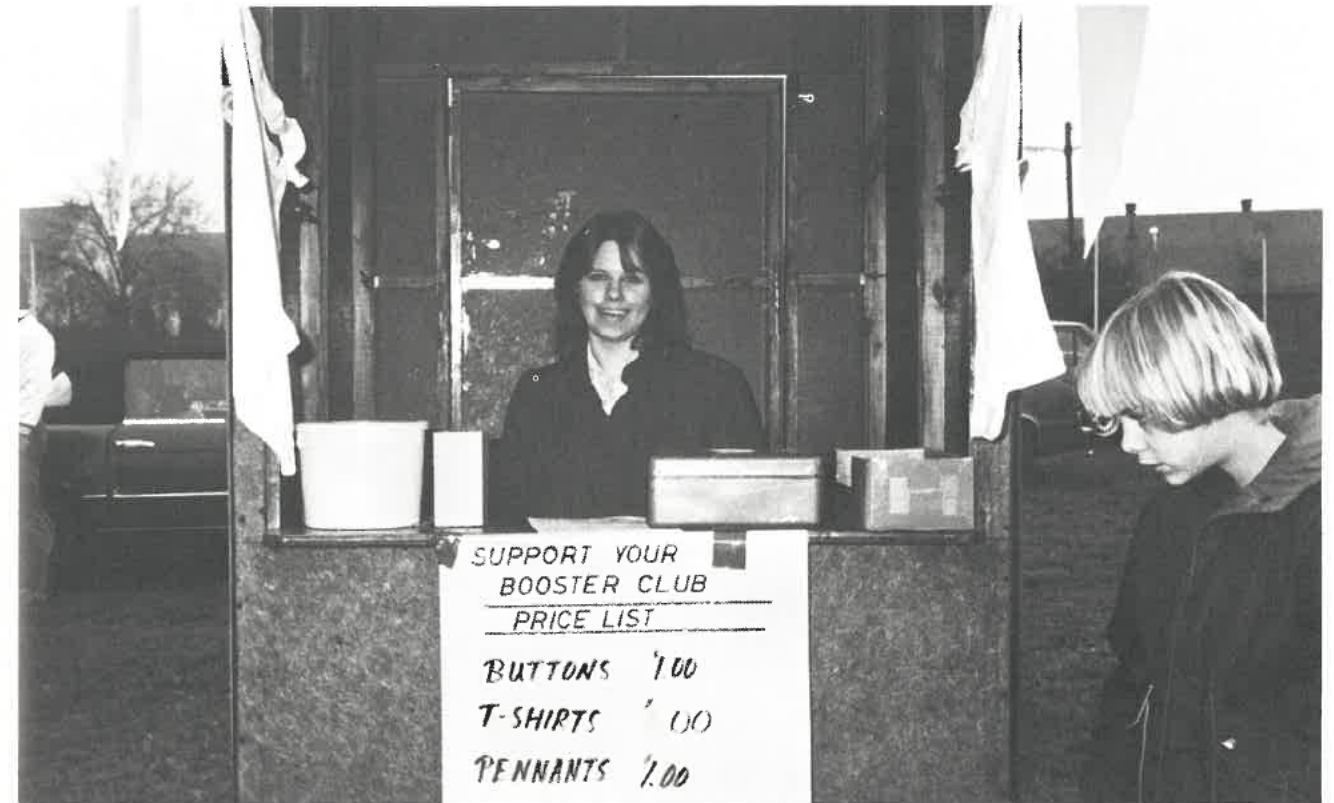 SUPPORT YOUR
BOOSTER CLUB
PRICE LIST
BUTTONS $1.00
T-SHIRTS
PENNANTS $1.00